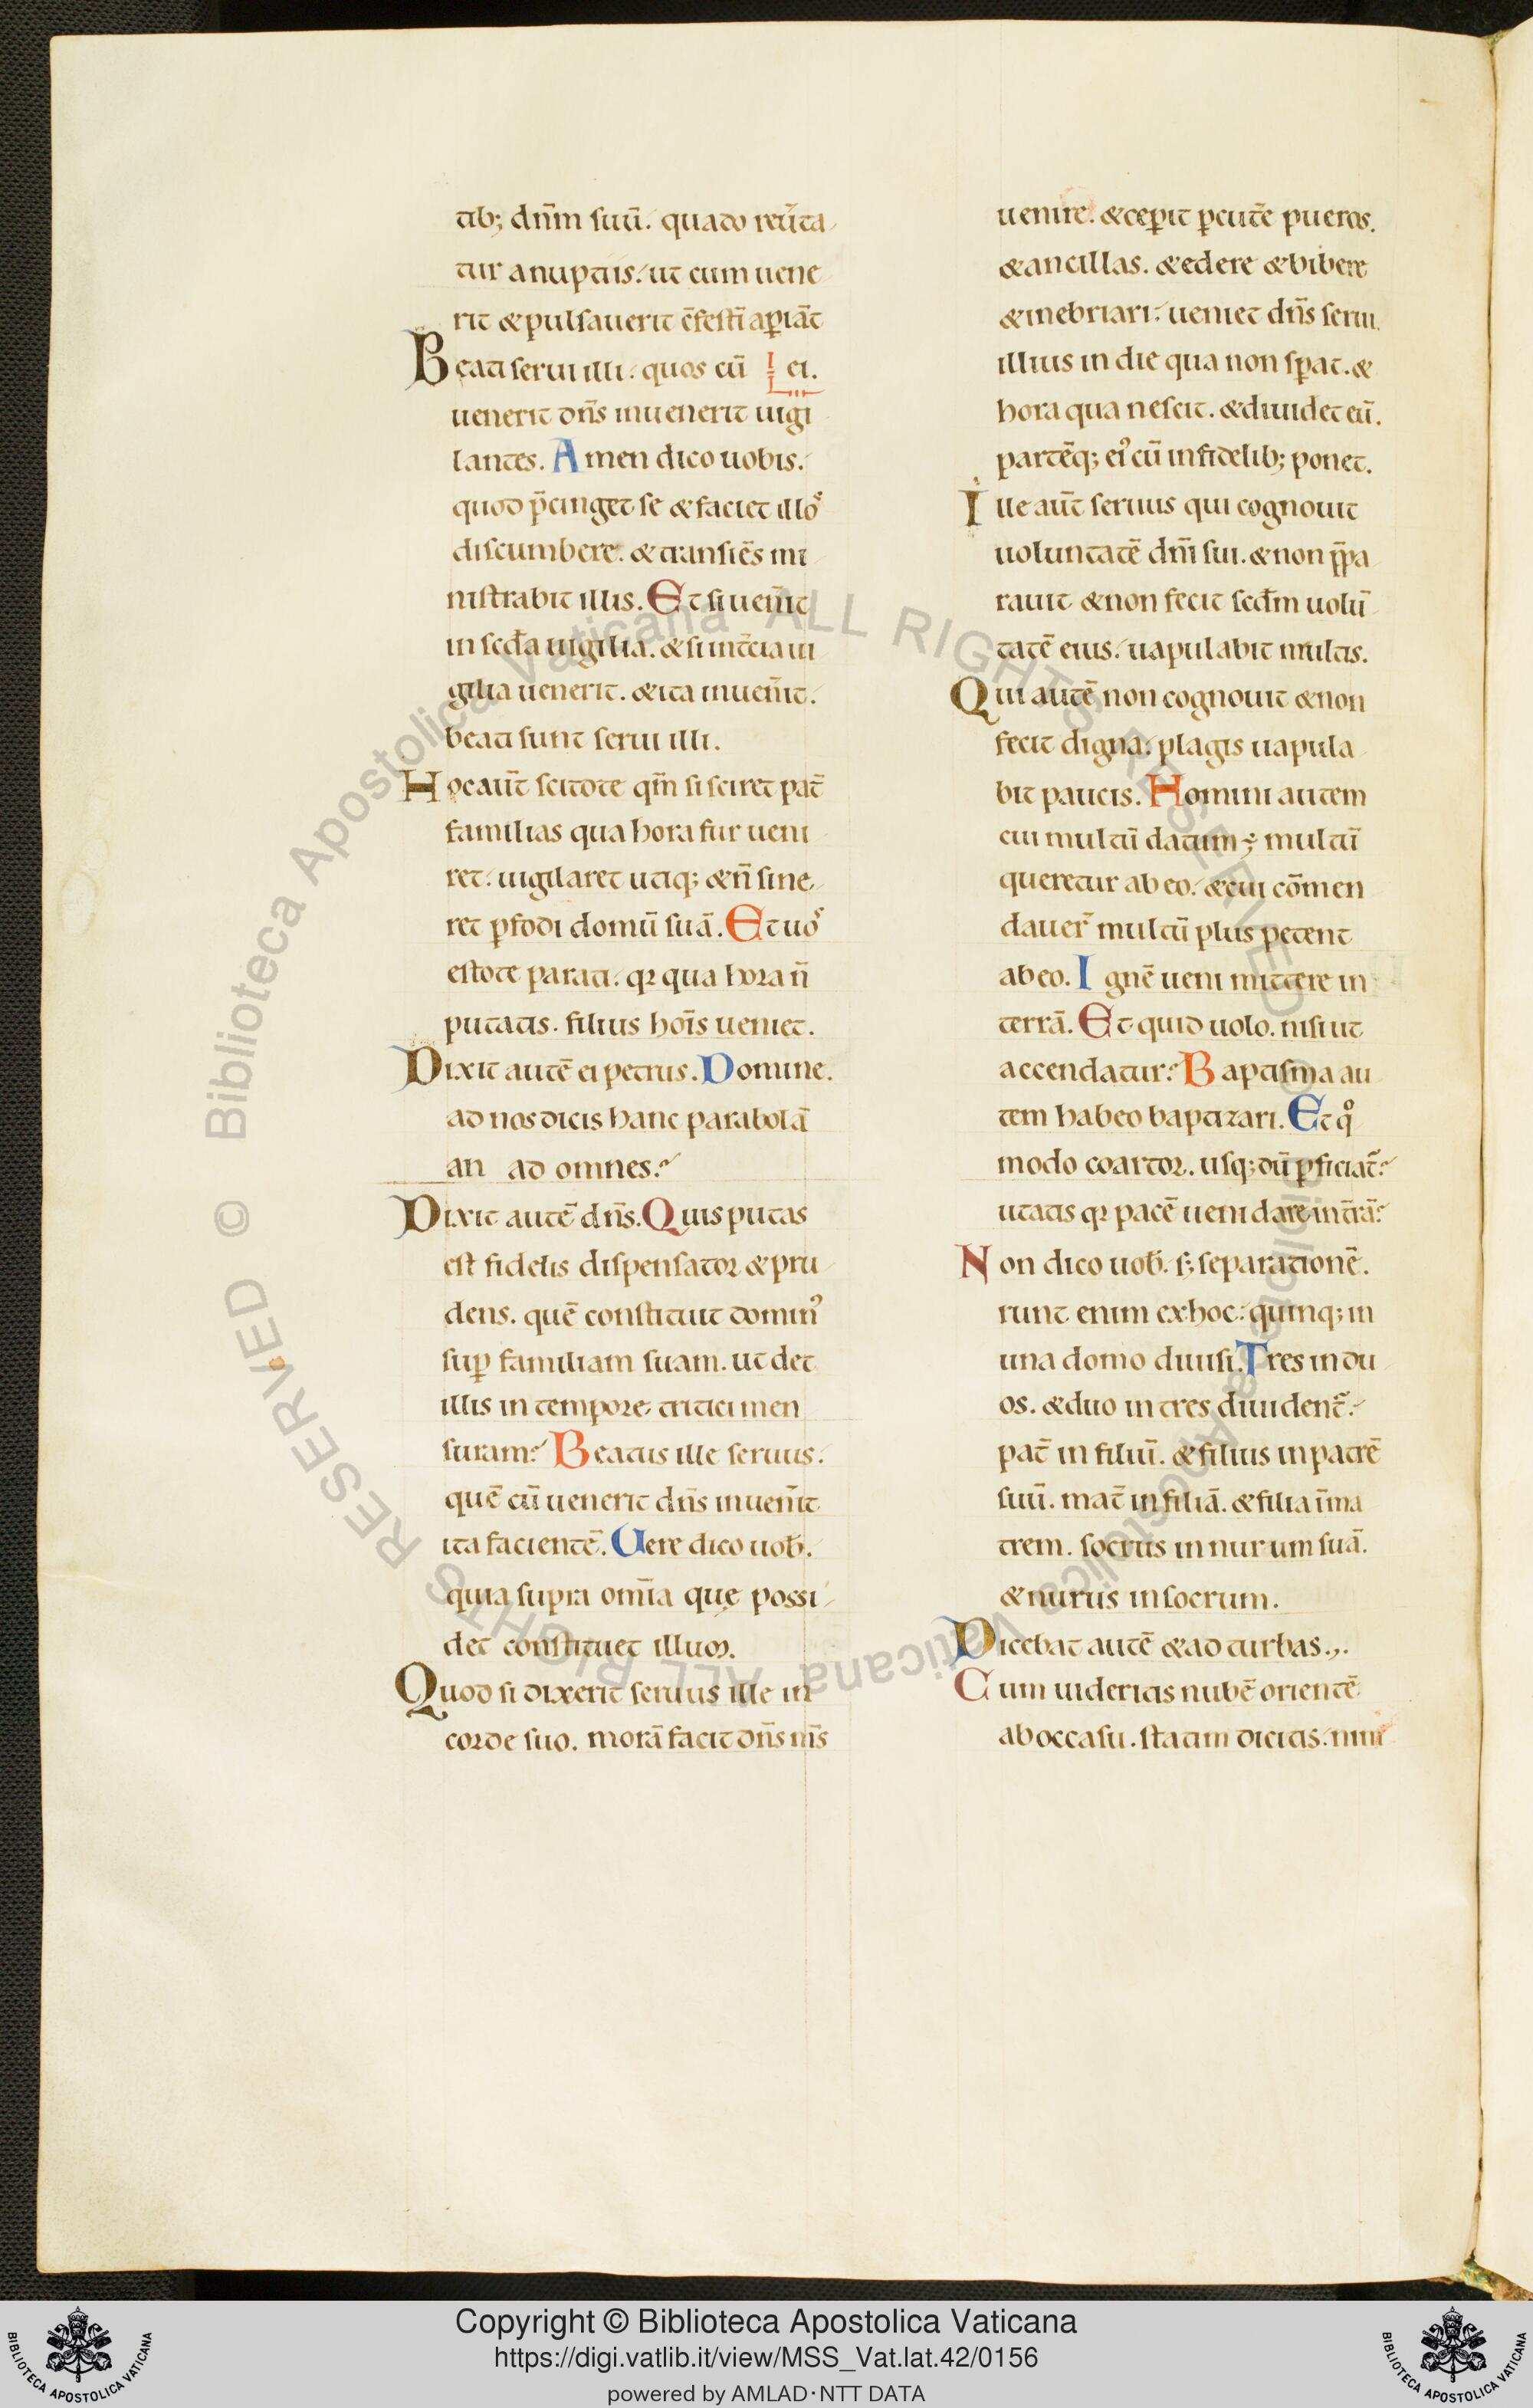 tib; dn̄m suū. quādo reu̾ta
tur a nuptiis. ut cum uene
rit & pulsauerit c̄festī aꝑiāt
Beati serui illi. quos cū ei.
uenerit dn̄s inuenerit uigi
lantes. Amen dico uobis.
quod p̄cinget se & faciet illoˢ
discumbere. & transiēs mi
nistrabit illis. Et si uen̄it
in scd̄a uigilia. & si in t̄cia ui
gilia uenerit. & ita inuen̄it.
beati sunt serui illi.
Hoc aut̄ scitote qm̄ si sciret pat̄
familias qua hora fur ueni
ret. uigilaret utiq; & n̄ sine
ret ꝑfodi domū suā. Et uoˢ
estote parati. qꝛ qua hora n̄
putatis. filius hoīs ueniet.
Dixit autē ei petrus. Domine.
ad nos dicis hanc parabolā
an ad omnes?
Dixit autē dn̄s. Quis putas
est fidelis dispensator & pru
dens. quē constituit dominꝰ
suꝑ familiam suam. ut det
illis in tempore tritici men
suram? Beatus ille seruus.
quē cū uenerit dn̄s inuen̄it
ita facientē. Uere dico uob̄.
quia supra om̄ia que possi
det constituet illum.
Quod si dixerit seruus ille in
corde suo. morā facit dn̄s m̄s
uenire. & ceꝑit ꝑcutē pueros.
& ancillas. & edere & bibere
& inebriari. ueniet dn̄s serui
illius in die qua non sꝑat. &
hora qua nescit. & diuidet eū.
partēq; eiꝰ cū infidelib; ponet.
Ille aut̄ seruus qui cognouit
uoluntatē dn̄i sui. & non p̄pa
rauit & non fecit scd̄m uolū
tatē eius. uapulabit multis.
Qui autē non cognouit & non
fecit digna. plagis uapula
bit paucis. Homini autem
cui multū datum ÷ multū
queretur ab eo. & cui cōmen
dauer̄ multū plus petent
ab eo. Ignē ueni mittere in
terrā. Et quid uolo. nisi ut
accendatur? Baptisma au
tem habeo baptizari. Et qͦ
modo coartor. usq; dū ꝑficiat̄?
utatis qꝛ pacē ueni dare in t̄rā?
Non dico uob̄. s; separationē.
runt enim ex hoc. quinq; in
una domo diuisi. Tres in du
os. & duo in tres diuident̄.
pat̄ in filiū. & filius in patrē
suū. mat̄ in filiā. & filia ī ma
trem. socrus in nurum suā.
& nurus in socrum.
Dicebat autē & ad turbas.
Cum uideritis nubē orientē
ab occasu. statim dicitis. nim
© Biblioteca Apostolica Vaticana ALL RIGHTS RESERVED © Biblioteca Apostolica Vaticana ALL RIGHTS RESERVED
Copyright © Biblioteca Apostolica Vaticana
https://digi.vatlib.it/view/MSS_Vat.lat.42/0156
powered by AMLAD·NTT DATA
BIBLIOTECA APOSTOLICA VATICANA
BIBLIOTECA APOSTOLICA VATICANA